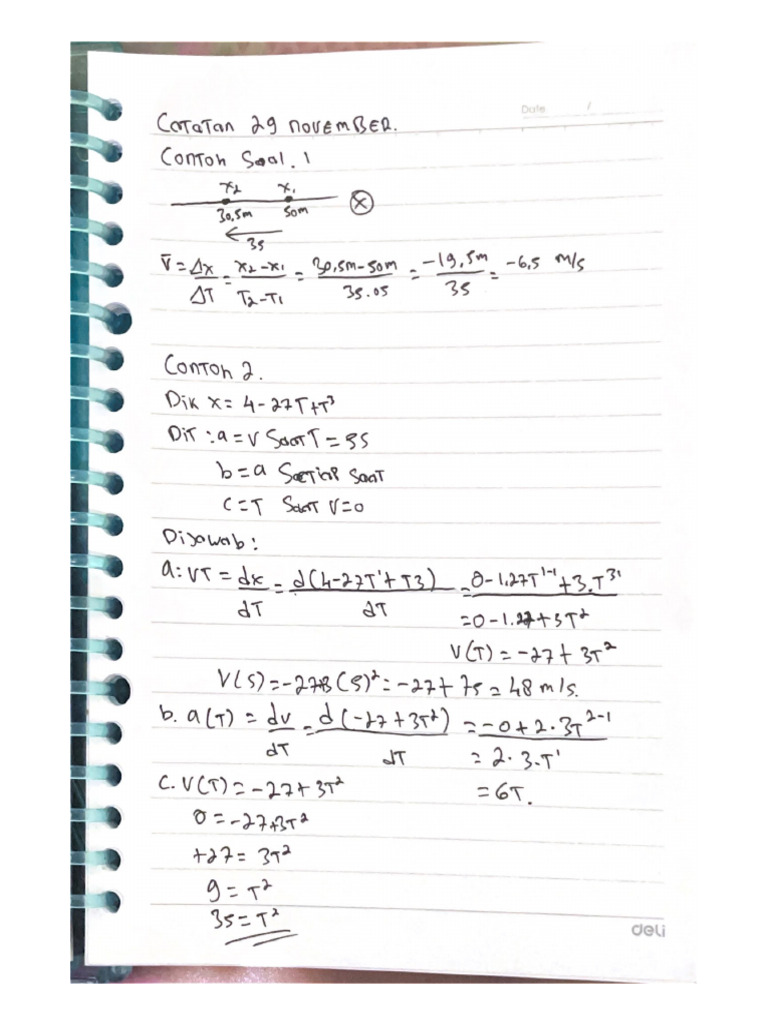 Date /
Catatan 29 november.
Contoh Soal. 1
x2 x1
30,5m 50m ⊗
← 3s
v̄ = Δx/ΔT = x2-x1/T2-T1 = 30,5m-50m/3s.0s = -19,5m/3s = -6,5 m/s
Contoh 2.
Dik x = 4-27T+T³
Dit : a = v Saat T = 5s
b = a Setiap Saat
c = T Saat V=0
Dijawab :
a : VT = dx/dT = d(4-27T¹+T3)/dT = 0-1.27T¹⁻¹+3.T³¹
= 0-1.27+3T²
V(T) = -27+3T²
V(5) = -27+3(5)² = -27+75 = 48 m/s.
b. a(T) = dv/dT = d(-27+3T²)/dT = -0+2.3T²⁻¹
= 2.3.T¹
c. V(T) = -27+3T² = 6T.
0 = -27+3T²
+27 = 3T²
9 = T²
3s = T²
deli